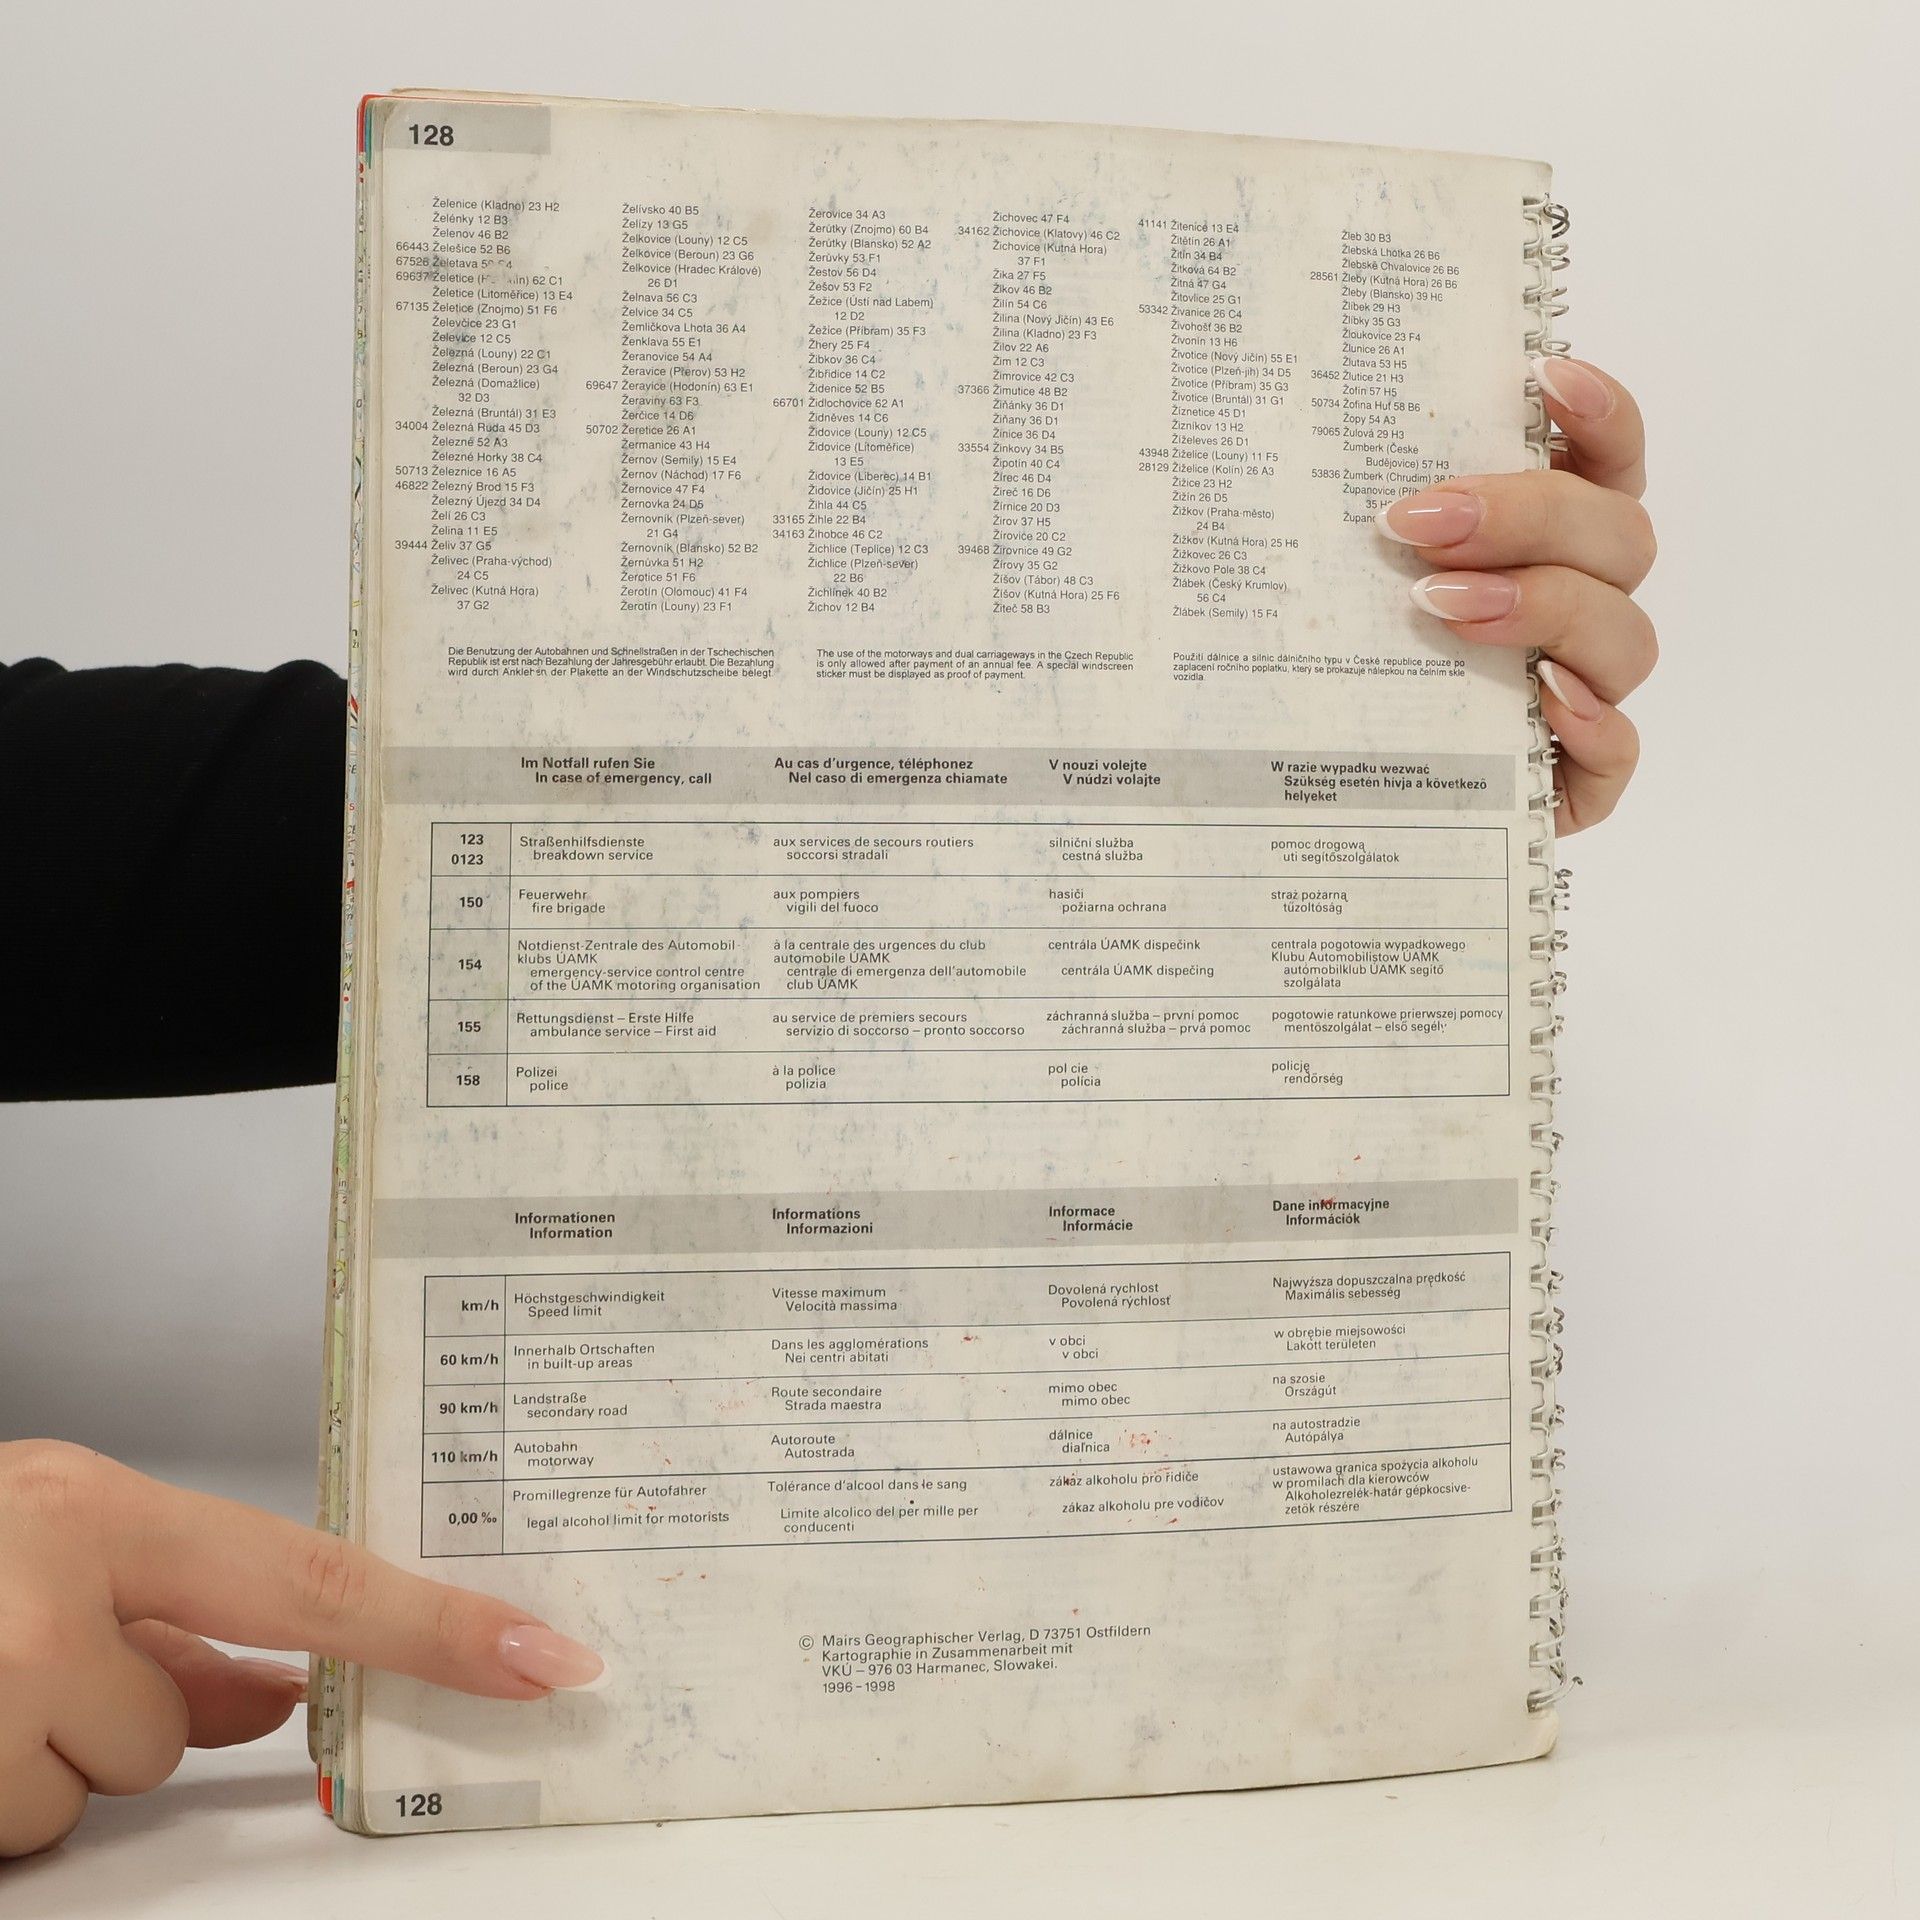 128
Želenice (Kladno) 23 H2
Želénky 12 B3
Želenov 46 B2
66443 Želešice 52 B6
67526 Želetava
69637 Želetice 62 C1
Želetice (Litoměřice) 13 E4
67135 Želetice (Znojmo) 51 F6
Želevčice 23 G1
Želevice 12 C5
Železná (Louny) 22 C1
Železná (Beroun) 23 G4
Železná (Domažlice)
32 D3
Železná (Bruntál) 31 E3
34004 Železná Ruda 45 D3
Železné 52 A3
Železné Horky 38 C4
50713 Železnice 16 A5
46822 Železný Brod 15 F3
Železný Újezd 34 D4
Želí 26 C3
Želina 11 E5
39444 Želiv 37 G5
Želivec (Praha-východ)
24 C5
Želivec (Kutná Hora)
37 G2
Želivsko 40 B5
Želízy 13 G5
Želkovice (Louny) 12 C5
Želkovice (Beroun) 23 G6
Želkovice (Hradec Králové)
26 D1
Želnava 56 C3
Želvice 34 C5
Žemličkova Lhota 36 A4
Ženklava 55 E1
Žeranovice 54 A4
Žeravice (Přerov) 53 H2
69647 Žeravice (Hodonín) 63 E1
Žeraviny 63 F3
Žerčice 14 D6
50702 Žeretice 26 A1
Žermanice 43 H4
Žernov (Semily) 15 E4
Žernov (Náchod) 17 F6
Žernovice 47 F4
Žernovka 24 D5
Žernovník (Plzeň-sever)
21 G4
Žernovník (Blansko) 52 B2
Žernůvka 51 H2
Žerotice 51 F6
Žerotín (Olomouc) 41 F4
Žerotín (Louny) 23 F1
Žerovice 34 A3
Žerůtky (Znojmo) 60 B4
Žerůtky (Blansko) 52 A2
Žerůvky 53 F1
Žestov 56 D4
Žešov 53 F2
Žežice (Ústí nad Labem)
12 D2
Žežice (Příbram) 35 F3
Žhery 25 F4
Žibkov 36 C4
Žibřidice 14 C2
Židenice 52 B5
66701 Židlochovice 62 A1
Židněves 14 C6
Židovice (Louny) 12 C5
Židovice (Litoměřice)
13 E5
Židovice (Liberec) 14 B1
Židovice (Jičín) 25 H1
Žihla 44 C5
33165 Žihle 22 B4
34163 Žihobce 46 C2
Žichlice (Teplice) 12 C3
Žichlice (Plzeň-sever)
22 B6
Žichlínek 40 B2
Žichov 12 B4
Žichovec 47 F4
34162 Žichovice (Klatovy) 46 C2
Žichovice (Kutná Hora)
37 F1
Žika 27 F5
Žikov 46 B2
Žilín 54 C6
Žilina (Nový Jičín) 43 E6
Žilina (Kladno) 23 F3
Žilov 22 A6
Žim 12 C3
Žimrovice 42 C3
37366 Žimutice 48 B2
Žiňánky 36 D1
Žiňany 36 D1
Žinice 36 D4
33554 Žinkovy 34 B5
Žipotín 40 C4
Žírec 46 D4
Žireč 16 D6
Žírnice 20 D3
Žirov 37 H5
Žirovice 20 C2
39468 Žirovnice 49 G2
Žírovy 35 G2
Žišov (Tábor) 48 C3
Žíšov (Kutná Hora) 25 F6
Žiteč 58 B3
41141 Žitenice 13 E4
Žitětín 26 A1
Žitín 34 B4
Žítková 64 B2
Žitná 47 G4
Žitovlice 25 G1
53342 Živanice 26 C4
Živohošť 36 B2
Živonín 13 H6
Životice (Nový Jičín) 55 E1
Životice (Plzeň-jih) 34 D5
Životice (Příbram) 35 G3
Životice (Bruntál) 31 G1
Žiznetice 45 D1
Žizníkov 13 H2
Žíželeves 26 D1
43948 Žiželice (Louny) 11 F5
28129 Žiželice (Kolín) 26 A3
Žižice 23 H2
Žižín 26 D5
Žižkov (Praha-město)
24 B4
Žižkov (Kutná Hora) 25 H6
Žižkovec 26 C3
Žižkovo Pole 38 C4
Žlábek (Český Krumlov)
56 C4
Žlábek (Semily) 15 F4
Žleb 30 B3
Žlebská Lhotka 26 B6
Žlebské Chvalovice 26 B6
28561 Žleby (Kutná Hora) 26 B6
Žleby (Blansko) 39 H6
Žlíbek 29 H3
Žlíbky 35 G3
Žloukovice 23 F4
Žlunice 26 A1
Žlutava 53 H5
36452 Žlutice 21 H3
Žofín 57 H5
50734 Žofina Huť 58 B6
Žopy 54 A3
79065 Žulová 29 H3
Žumberk (České
Budějovice) 57 H3
53836 Žumberk (Chrudim) 38
Županovice
35
Die Benutzung der Autobahnen und Schnellstraßen in der Tschechischen
Republik ist erst nach Bezahlung der Jahresgebühr erlaubt. Die Bezahlung
wird durch Ankleben der Plakette an der Windschutzscheibe belegt.
The use of the motorways and dual carriageways in the Czech Republic
is only allowed after payment of an annual fee. A special windscreen
sticker must be displayed as proof of payment.
Použití dálnice a silnic dálničního typu v České republice pouze po
zaplacení ročního poplatku, který se prokazuje nálepkou na čelním skle
vozidla.
Im Notfall rufen Sie
In case of emergency, call
Au cas d'urgence, téléphonez
Nel caso di emergenza chiamate
V nouzi volejte
V núdzi volajte
W razie wypadku wezwać
Szükség esetén hívja a következõ
helyeket
123
0123
Straßenhilfsdienste
breakdown service
aux services de secours routiers
soccorsi stradali
silniční služba
cestná služba
pomoc drogową
uti segítõszolgálatok
150
Feuerwehr
fire brigade
aux pompiers
vigili del fuoco
hasiči
požiarna ochrana
straż pożarną
tűzoltóság
154
Notdienst-Zentrale des Automobil-
klubs ÚAMK
emergency-service control centre
of the ÚAMK motoring organisation
à la centrale des urgences du club
automobile ÚAMK
centrale di emergenza dell'automobile
club ÚAMK
centrála ÚAMK dispečink
centrála ÚAMK dispečing
centrala pogotowia wypadkowego
Klubu Automobilistow ÚAMK
autómobilklub ÚAMK segítő
szolgálata
155
Rettungsdienst – Erste Hilfe
ambulance service – First aid
au service de premiers secours
servizio di soccorso – pronto soccorso
záchranná služba – první pomoc
záchranná služba – prvá pomoc
pogotowie ratunkowe prierwszej pomocy
mentõszolgálat – elsõ segély
158
Polizei
police
à la police
polizia
pol cie
polícia
policję
rendőrség
Informationen
Information
Informations
Informazioni
Informace
Informácie
Dane informacyjne
Információk
km/h
Höchstgeschwindigkeit
Speed limit
Vitesse maximum
Velocità massima
Dovolená rychlost
Povolená rýchlosť
Najwyższa dopuszczalna prędkość
Maximális sebesség
60 km/h
Innerhalb Ortschaften
in built-up areas
Dans les agglomérations
Nei centri abitati
v obci
v obci
w obrębie miejsowości
Lakott területen
90 km/h
Landstraße
secondary road
Route secondaire
Strada maestra
mimo obec
mimo obec
na szosie
Országút
110 km/h
Autobahn
motorway
Autoroute
Autostrada
dálnice
diaľnica
na autostradzie
Autópálya
0,00 ‰
Promillegrenze für Autofahrer
legal alcohol limit for motorists
Tolérance d'alcool dans le sang
Limite alcolico del per mille per
conducenti
zákaz alkoholu pro řidiče
zákaz alkoholu pre vodičov
ustawowa granica spożycia alkoholu
w promilach dla kierowców
Alkoholezrelék-határ gépkocsive-
zetök részére
© Mairs Geographischer Verlag, D 73751 Ostfildern
Kartographie in Zusammenarbeit mit
VKÚ – 976 03 Harmanec, Slowakei.
1996 – 1998
128